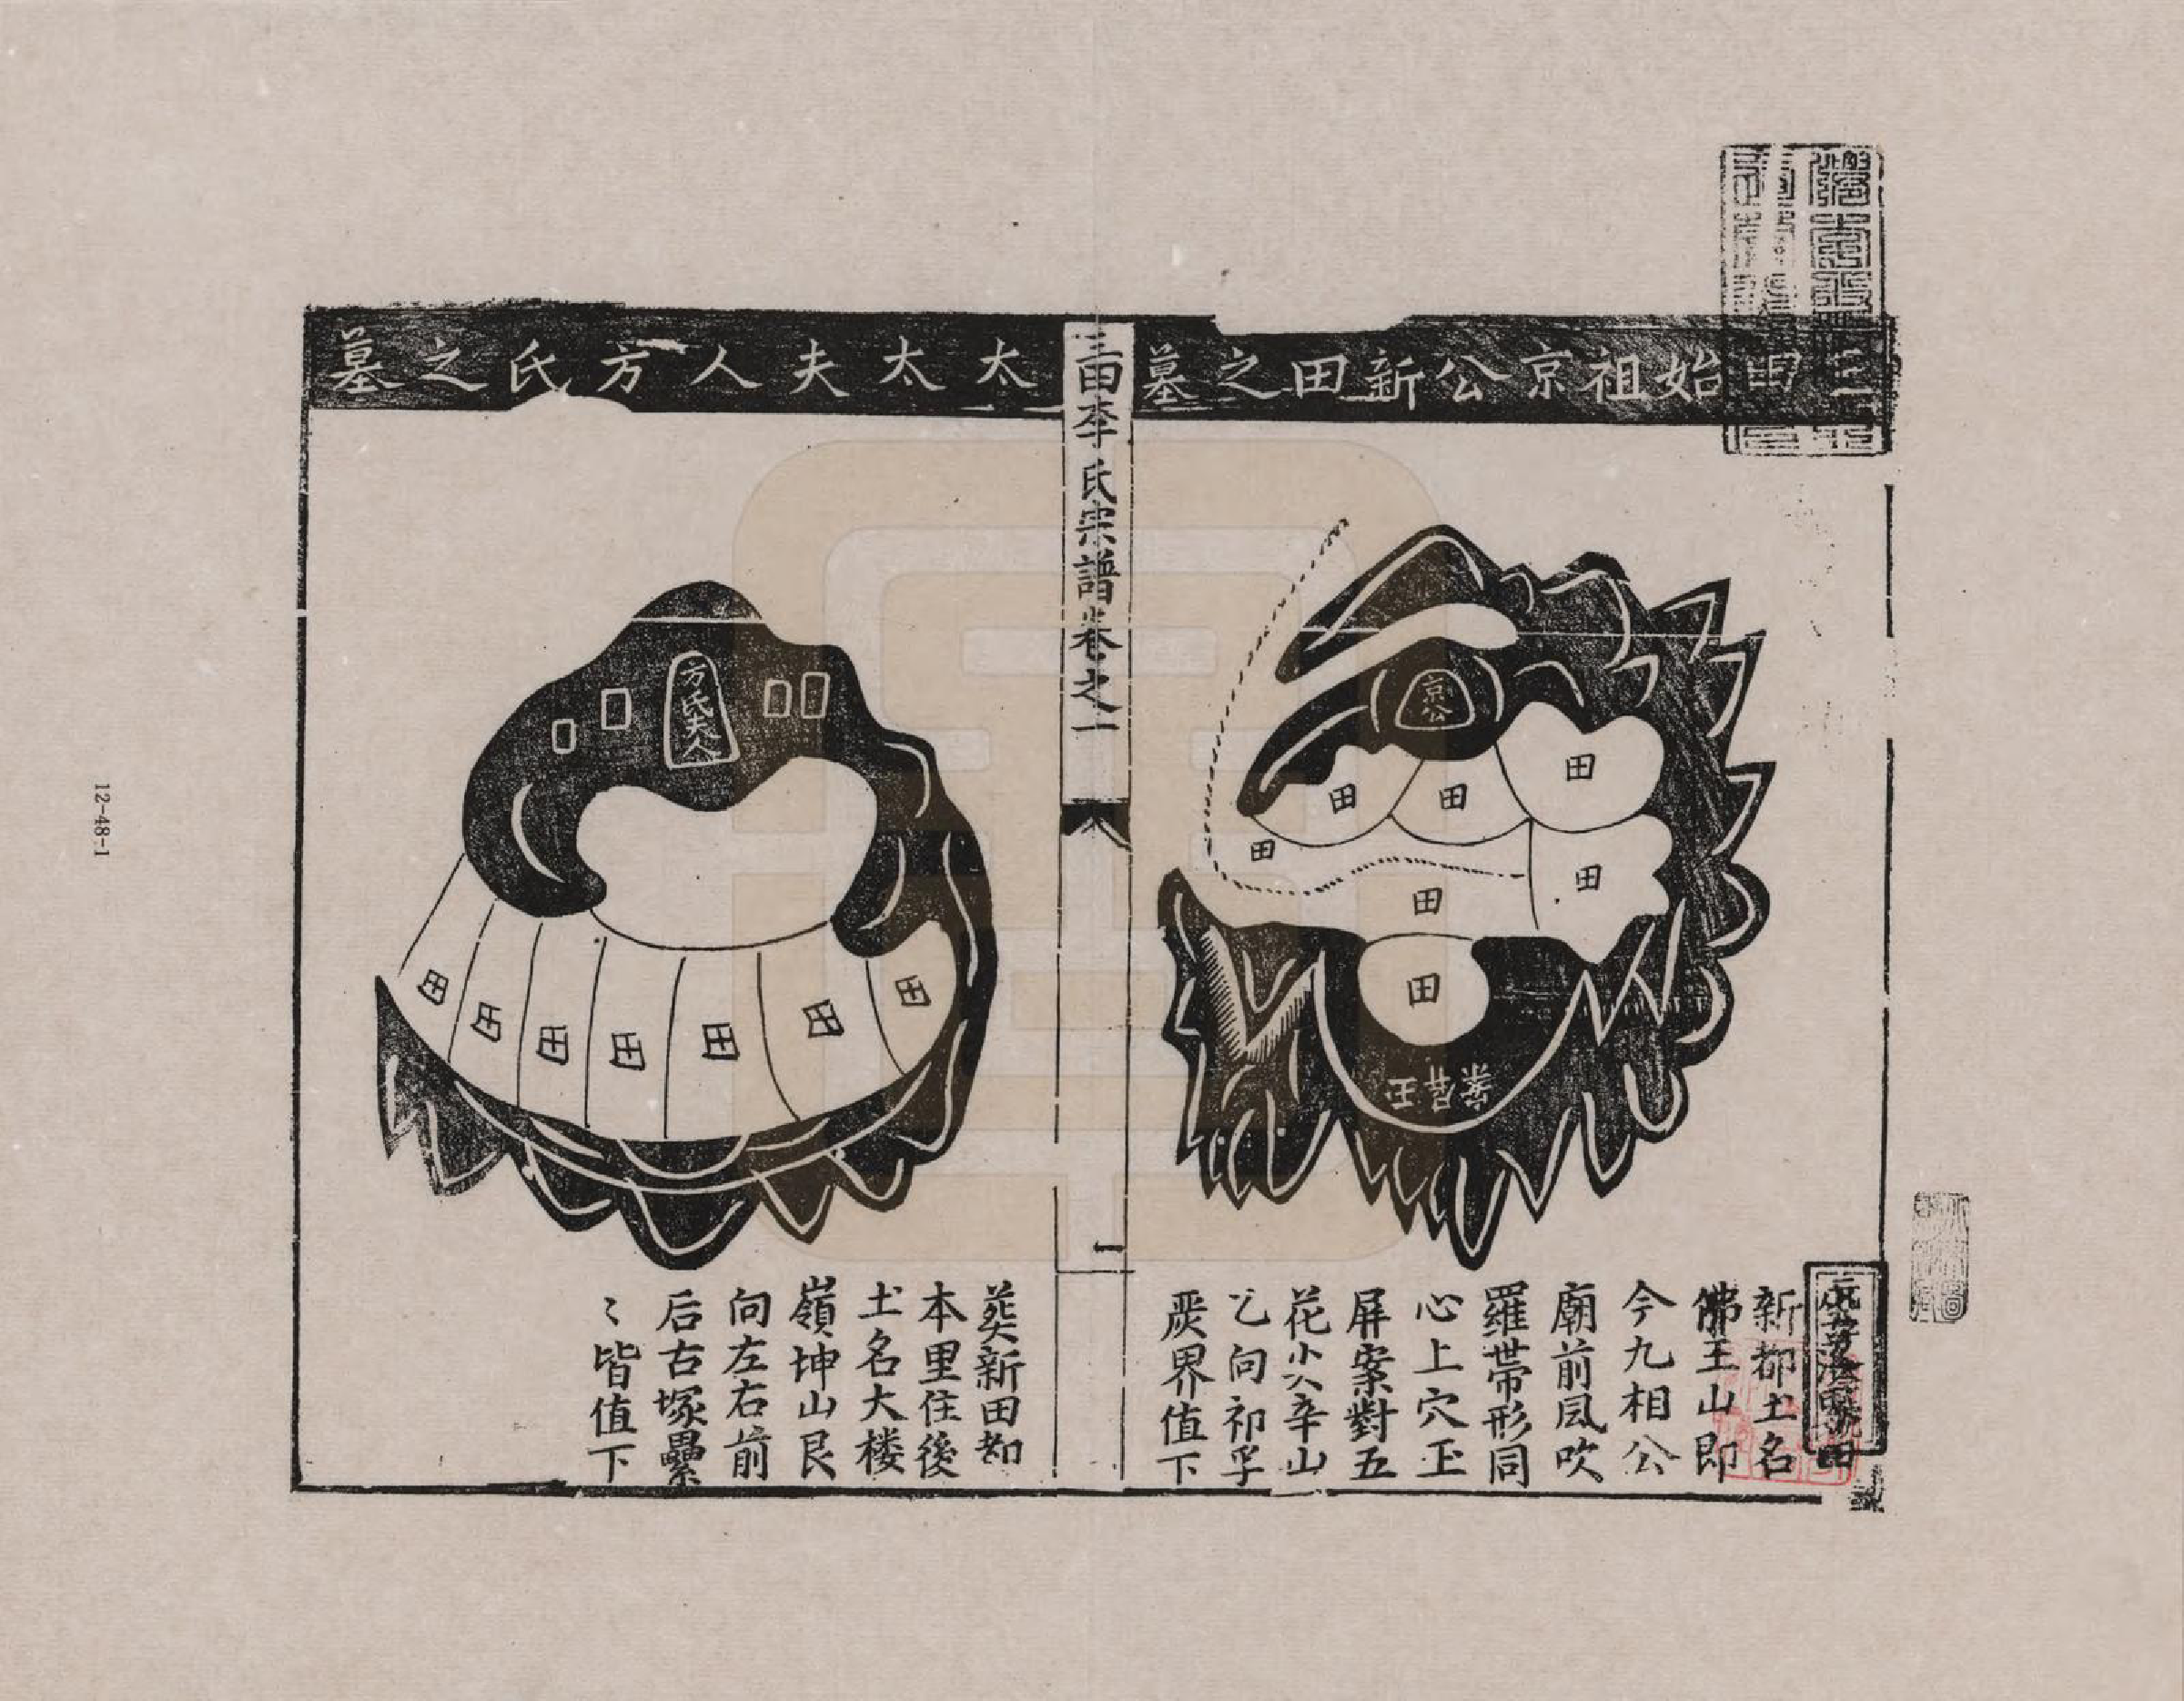 三田始祖京公新田之墓
京公
田
田
田
田
田
田
田
玉屏案
新都土名
佛王山即
今九相公
廟前風吹
羅帶形同
心上穴玉
屏案對五
花尖辛山
乙向祁孚
灰界值下
三田李氏宗譜卷之一
一
太太夫人方氏之墓
方氏夫人
田
田
田
田
田
田
田
葬新田都
本里住後
土名大楼
嶺坤山艮
向左右前
后古塚纍
〻皆值下
12-48-1